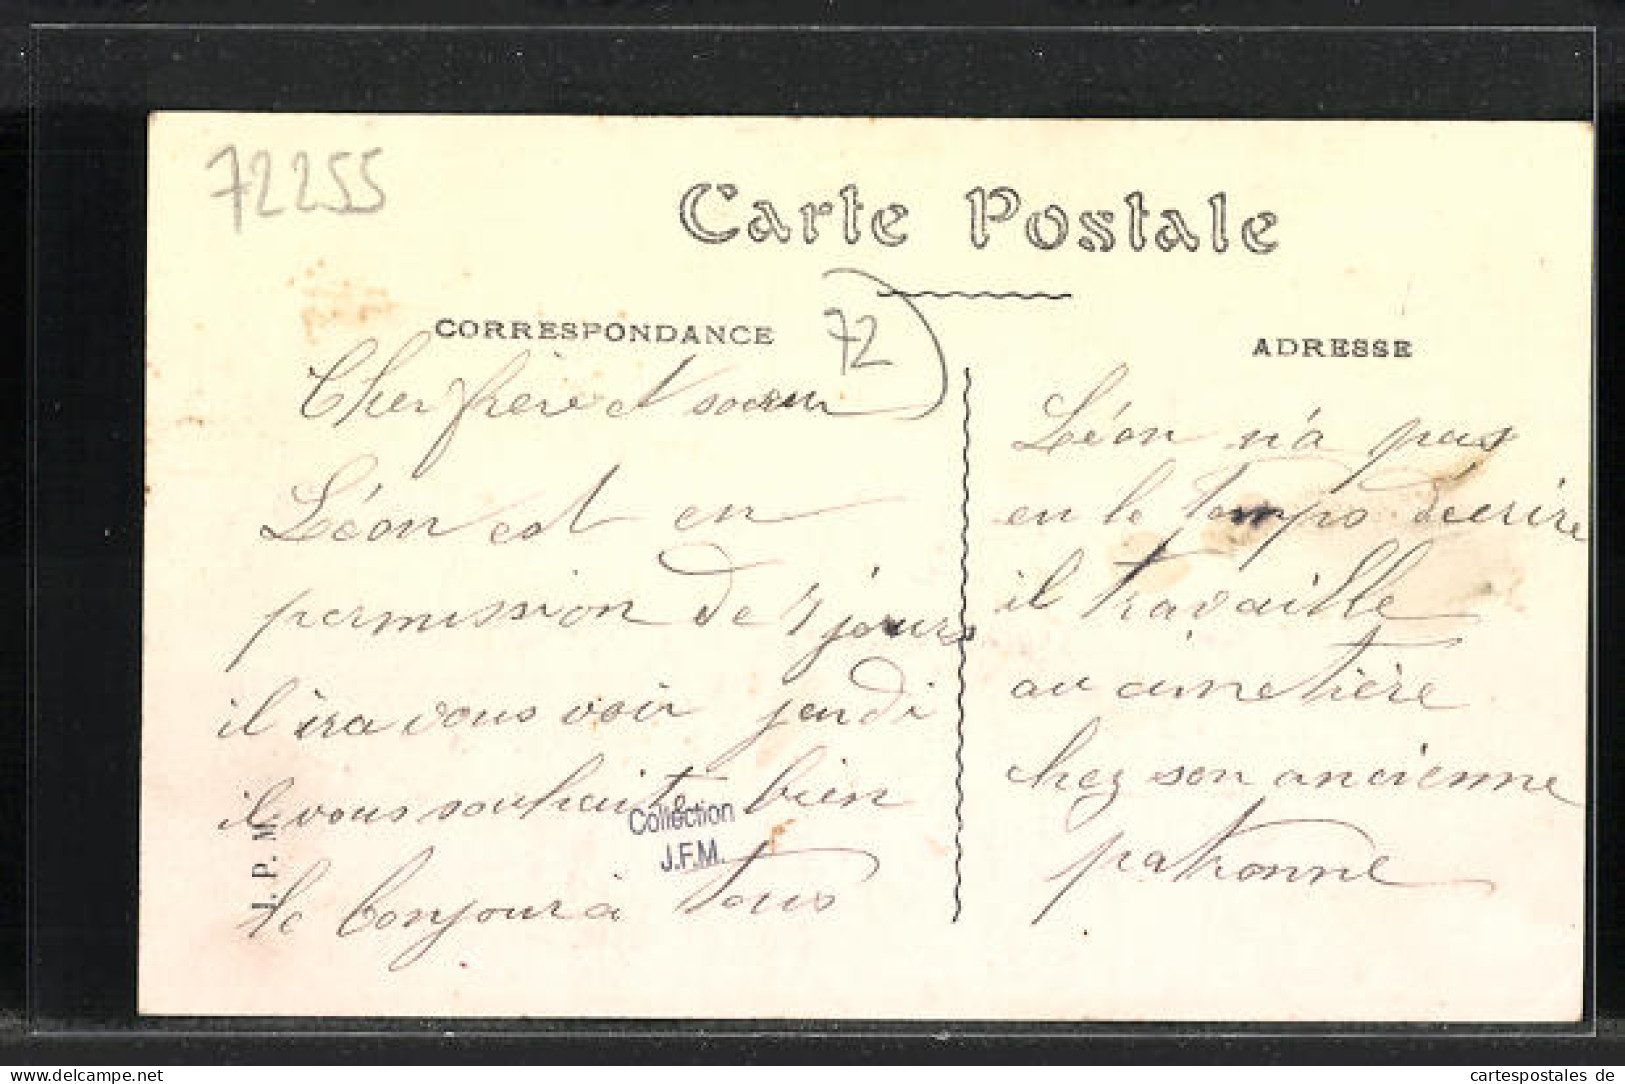 72255
Carte Postale
CORRESPONDANCE
72
ADRESSE
Cher frère et soeur
Léon est en
permission de 4 jours
il ira vous voir jeudi
il vous souhaite bien
le bonjour à tous
Léon n'a pas
eu le temps décrire
il travaille
au cimetière
chez son ancienne
patronne
Collection
J.F.M.
J. P. M.
cartespostales de